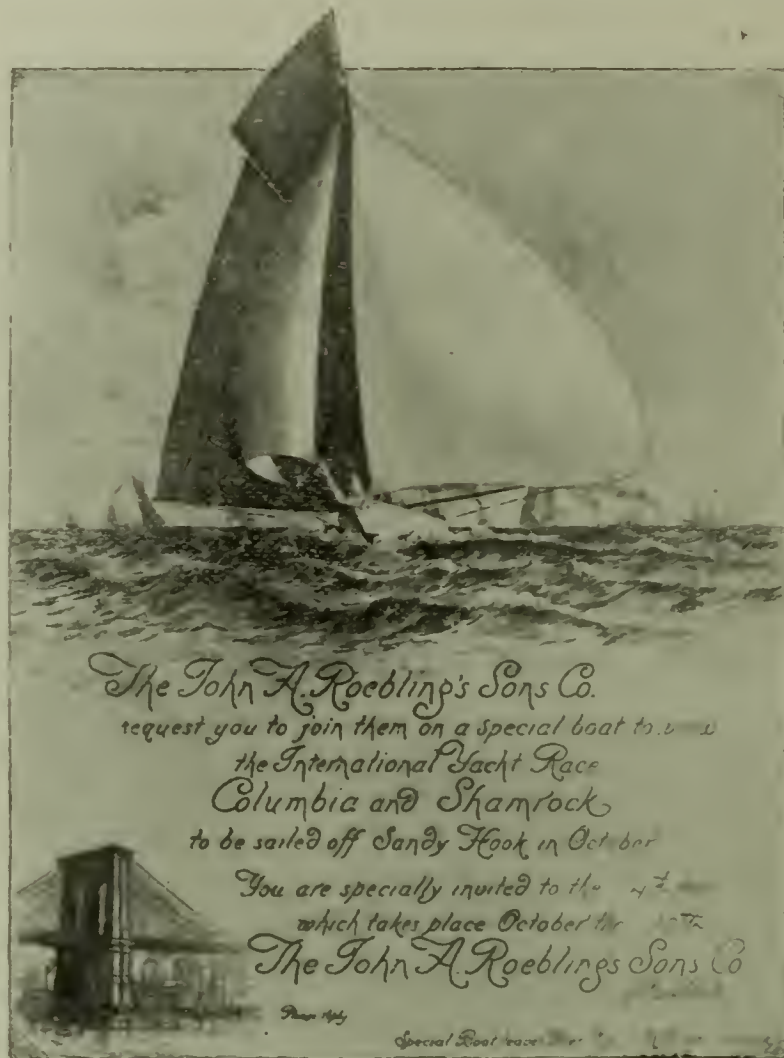 The John A. Roebling's Sons Co.
request you to join them on a special boat to
the International Yacht Race
Columbia and Shamrock
to be sailed off Sandy Hook in October
You are specially invited to the
which takes place October the
The John A. Roeblings Sons Co
Please reply
Special Boat